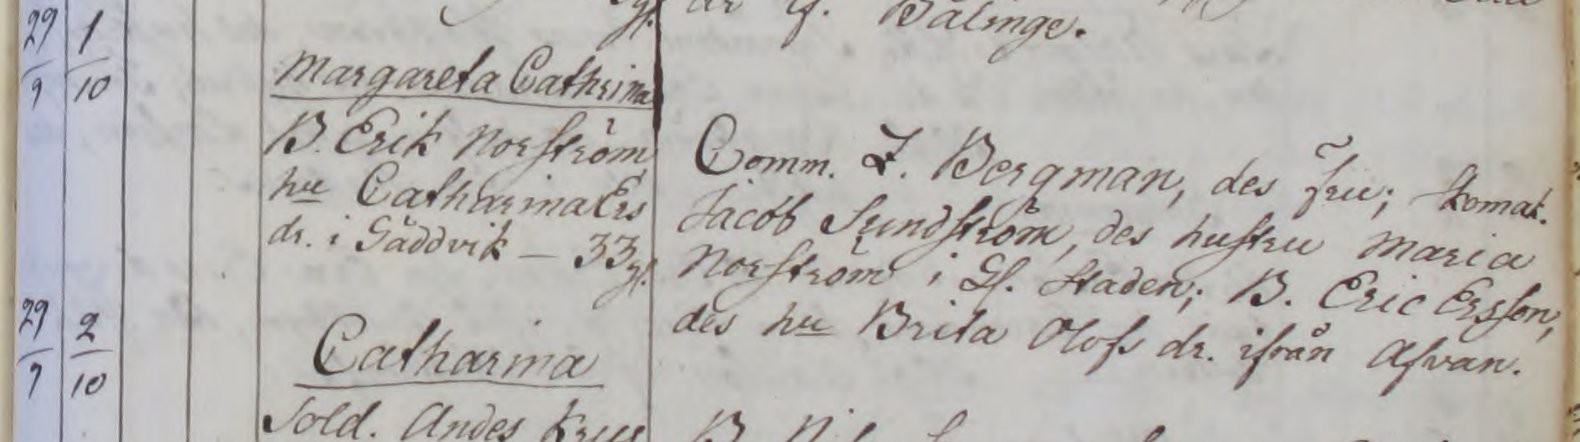 Bälinge.
29 1
9 10
Margareta Cathrina
B. Erik Norström
hu Catharina Ers
dr. i Gäddvik — 33
Comm. Z. Bergman, des Fru;
Jacob Sundström, des hustru Maria
Norström i Gl. Staden; B. Eric Ersson,
des hu Brita Olofs dr. ifrån Afvan.
29 2
9 10
Catharina
Sold. Andes